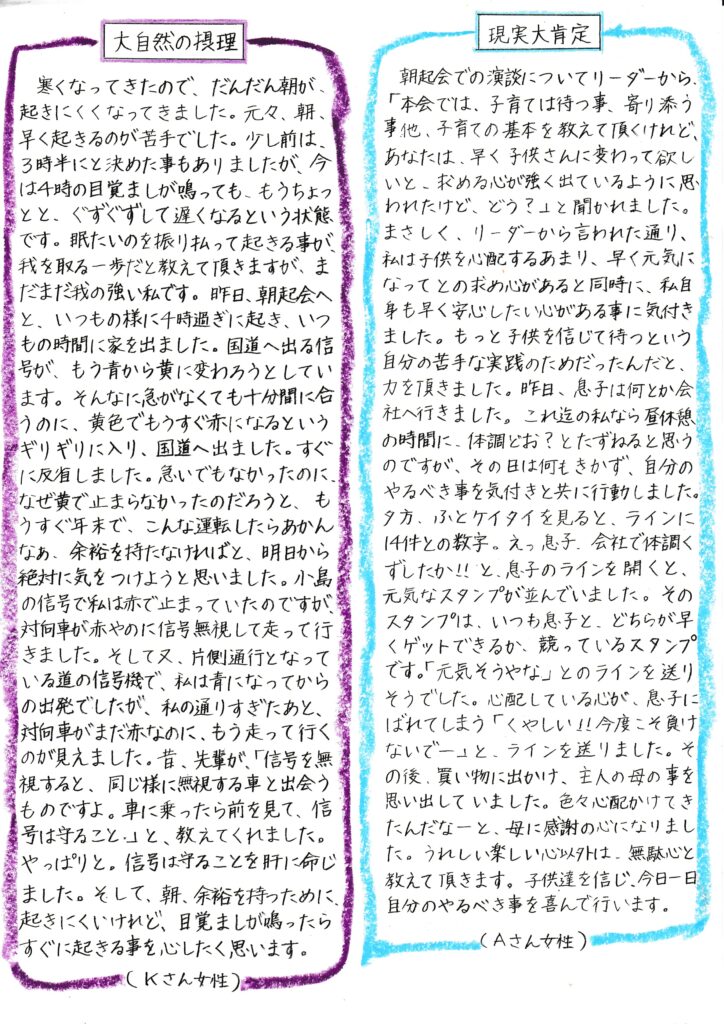 大自然の摂理
寒くなってきたので、だんだん朝が、
起きにくくなってきました。元々、朝、
早く起きるのが苦手でした。少し前は、
3時半にと決めた事もありましたが、今
は4時の目覚ましが鳴っても、もうちょっ
とと、ぐずぐずして遅くなるという状態
です。眠たいのを振り払って起きる事が、
我を取る一歩だと教えて頂きますが、ま
だまだ我の強い私です。昨日、朝起会へ
と、いつもの様に4時過ぎに起き、いつ
もの時間に家を出ました。国道へ出る信
号が、もう青から黄に変わろうとしてい
ます。そんなに急がなくても十分間に合
うのに、黄色でもうすぐ赤になるという
ギリギリに入り、国道へ出ました。すぐ
に反省しました。急いでもなかったのに、
なぜ黄で止まらなかったのだろうと、も
うすぐ年末で、こんな運転したらあかん
なぁ、余裕を持たなければと、明日から
絶対に気をつけようと思いました。小島
の信号で私は赤で止まっていたのですが、
対向車が赤やのに信号無視して走って行
きました。そして又、片側通行となって
いる道の信号機で、私は青になってから
の出発でしたが、私の通りすぎたあと、
対向車がまだ赤なのに、もう走って行く
のが見えました。昔、先輩が、「信号を無
視すると、同じ様に無視する車と出会う
ものですよ。車に乗ったら前を見て、信
号は守ること。」と、教えてくれました。
やっぱりと。信号は守ることを肝に命じ
ました。そして、朝、余裕を持つために、
起きにくいけれど、目覚ましが鳴ったら
すぐに起きる事を心したく思います。
(Kさん女性)
現実大肯定
朝起会での演談についてリーダーから、
「本会では、子育ては待つ事、寄り添う
事他、子育ての基本を教えて頂くけれど、
あなたは、早く子供さんに変わって欲し
いと、求める心が強く出ているように思
われたけど、どう?」と聞かれました。
まさしく、リーダーから言われた通り、
私は子供を心配するあまり、早く元気に
なってとの求め心があると同時に、私自
身も早く安心したい心がある事に気付き
ました。もっと子供を信じて待つという
自分の苦手な実践のためだったんだと、
力を頂きました。昨日、息子は何とか会
社へ行きました。これ迄の私なら昼休憩
の時間に、体調どお?とたずねると思う
のですが、その日は何もきかず、自分の
やるべき事を気付きと共に行動しました。
夕方、ふとケイタイを見ると、ラインに
14件との数字。えっ息子、会社で体調く
ずしたか!!と、息子のラインを開くと、
元気なスタンプが並んでいました。その
スタンプは、いつも息子と、どちらが早
くゲットできるか、競っているスタンプ
です。「元気そうやな」とのラインを送り
そうでした。心配している心が、息子に
ばれてしまう「くやしい!!今度こそ負け
ないでー」と、ラインを送りました。そ
の後、買い物に出かけ、主人の母の事を
思い出していました。色々心配かけてき
たんだなーと、母に感謝の心になりまし
た。うれしい楽しい心以外は、無駄心と
教えて頂きます。子供達を信じ、今日一日
自分のやるべき事を喜んで行います。
(Aさん女性)